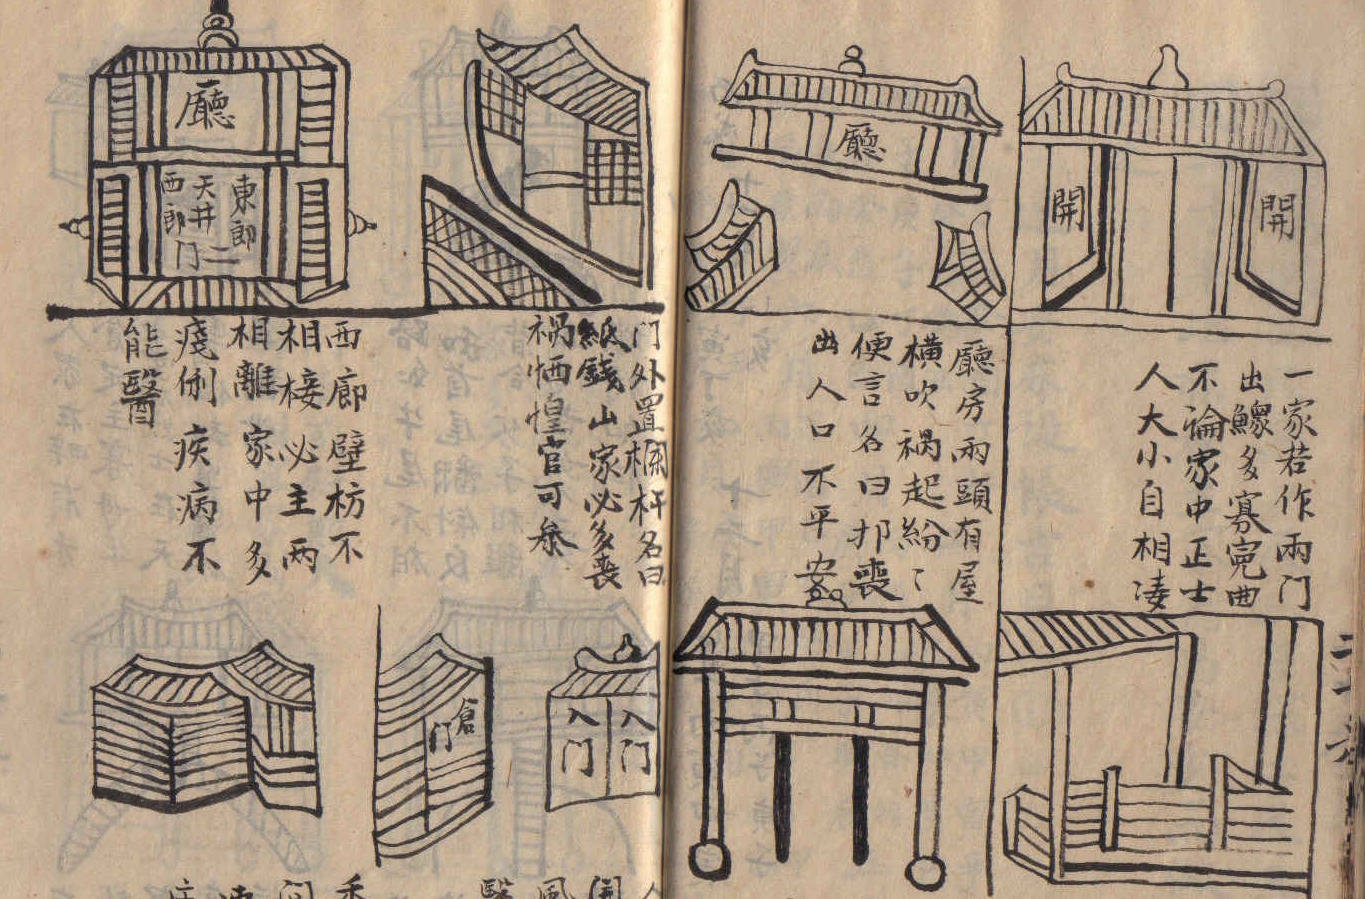 開
開
一家若作兩门
出鰥多寡寃曲
不論家中正士
人大小自相凌
廳
廳房兩頭有屋
横吹禍起紛〻
便言名曰邦喪
出人口不平安
门外置欄杆名曰
紙錢山家必多喪
禍恓惶官可叅
廳
東郎
天井二
西郎门
西廊壁枋不
相接必主两
相離家中多
疾病不
能醫
入门
入门
倉门